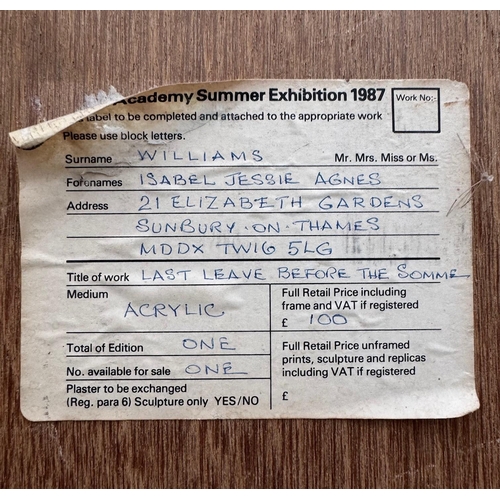 Academy Summer Exhibition 1987
Work No:-
label to be completed and attached to the appropriate work
Please use block letters.
Surname WILLIAMS Mr. Mrs. Miss or Ms.
Forenames ISABEL JESSIE AGNES
Address 21 ELIZABETH GARDENS
SUNBURY-ON-THAMES
MDDX TW16 5LG
Title of work LAST LEAVE BEFORE THE SOMME
Medium
ACRYLIC
Full Retail Price including
frame and VAT if registered
£ 100
Total of Edition ONE
No. available for sale ONE
Plaster to be exchanged
(Reg. para 6) Sculpture only YES/NO
Full Retail Price unframed
prints, sculpture and replicas
including VAT if registered
£